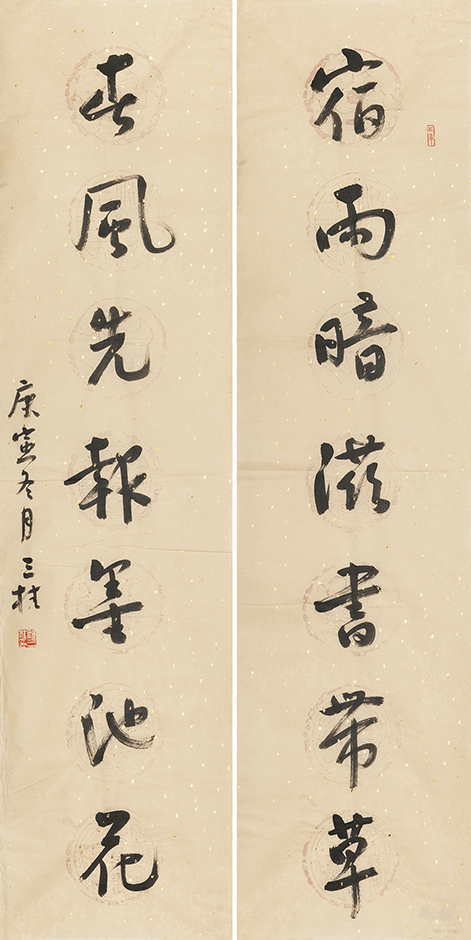 宿雨暗滋書带草
春風先報墨池花
庚寅冬月三桂